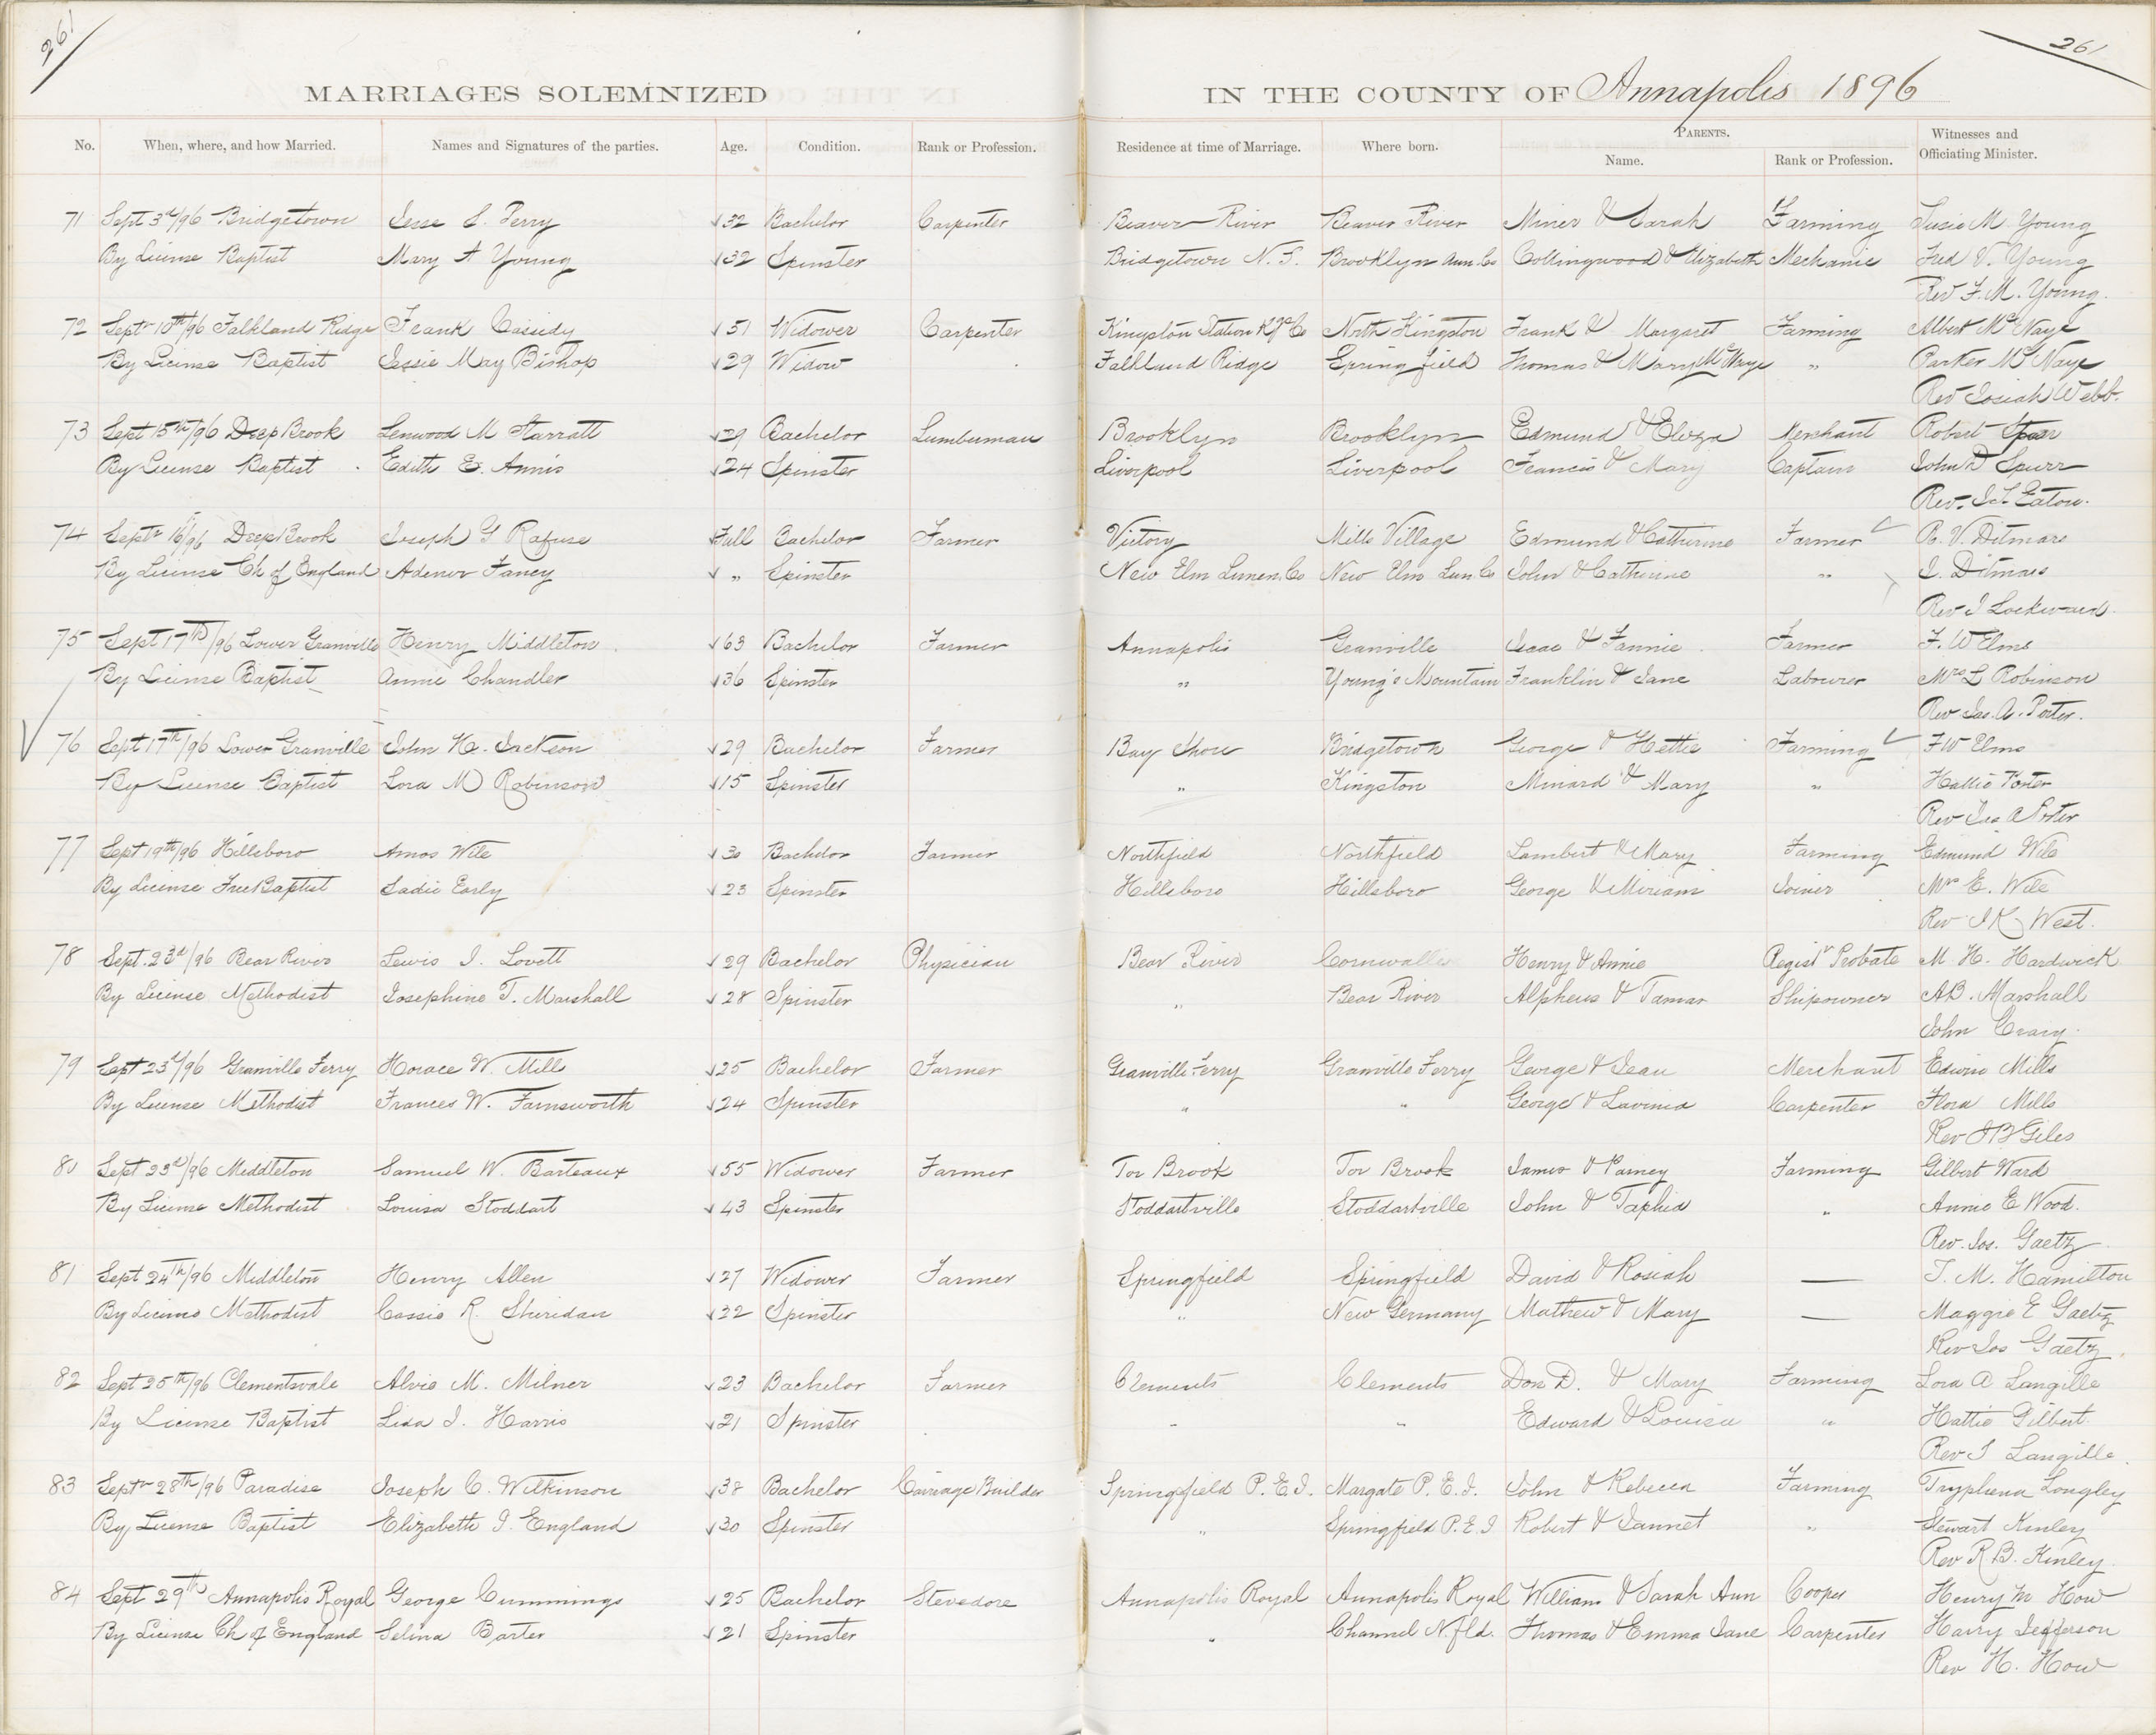 261
261
MARRIAGES SOLEMNIZED IN THE COUNTY OF Annapolis 1896
No. When, where, and how Married. Names and Signatures of the parties. Age. Condition. Rank or Profession. Residence at time of Marriage. Where born. PARENTS. Name. Rank or Profession. Witnesses and Officiating Minister.
71 Sept 3d/96 Bridgetown Jesse S. Perry 32 Bachelor Carpenter Beaver River Beaver River Miner & Sarah Farming Susie M. Young
By License Baptist Mary A Young 32 Spinster Bridgetown N.S. Brooklyn Ann. Co Collingwood & Elizabeth Mechanic Fred V. Young
Rev F. M. Young.
72 Septr 10th/96 Falkland Ridge Frank Casidy 51 Widower Carpenter Kingston Station Kgs Co North Kingston Frank & Margaret Farming Albert McNaye
By License Baptist Jessie May Bishop 29 Widow Falkland Ridge Springfield Thomas & Mary McNaye " Parker McNaye
Rev Josiah Webb.
73 Sept 15th/96 Deep Brook Lenwood M Starratt 29 Bachelor Lumberman Brooklyn Brooklyn Edmund & Eliza Merchant Robert Spurr
By License Baptist Edith E. Annis 24 Spinster Liverpool Liverpool Francis & Mary Captain John D Spurr
Rev. J.T. Eaton.
74 Septr 16/96 Deep Brook Joseph G Rafuse Full Bachelor Farmer Victory Mills Village Edmund & Catherine Farmer R. V. Ditmars
By License Ch of England Adener Fancy " Spinster New Elm Lunen. Co New Elm Lun. Co John & Catherine " I. Ditmars
Rev J Lockward.
75 Sept 17th/96 Lower Granville Henry Middleton 63 Bachelor Farmer Annapolis Granville Isaac & Fannie Farmer F. W Elms
By License Baptist Annie Chandler 36 Spinster " Young's Mountain Franklin & Jane Labourer Mrs L Robinson
Rev Jas. A. Porter.
76 Sept 17th/96 Lower Granville John H. Jackson 29 Bachelor Farmer Bay Shore Bridgetown George & Hettie Farming F W Elms
By License Baptist Lora M Robinson 15 Spinster " Kingston Minard & Mary " Hallie Porter
Rev Jas A Porter
77 Sept 19th/96 Hillsboro Amos Wile 30 Bachelor Farmer Northfield Northfield Lambert & Mary Farming Edmund Wile
By License Free Baptist Sadie Early 23 Spinster Hillsboro Hillsboro George & Miriam Joiner Mrs E. Wile
Rev J K West.
78 Sept. 23d/96 Bear River Lewis J. Lovett 29 Bachelor Physician Bear River Cornwallis Henry & Annie Registr Probate M. H. Hardwick
By License Methodist Josephine T. Marshall 28 Spinster " Bear River Alpheus & Tamar Shipowner A.B. Marshall
John Craig.
79 Sept 23d/96 Granville Ferry Horace W. Mills 25 Bachelor Farmer Granville Ferry Granville Ferry George & Jean Merchant Edwin Mills
By License Methodist Frances W. Farnsworth 24 Spinster " " George & Lavinia Carpenter Flora Mills
Rev J B Giles
80 Sept 23d/96 Middleton Samuel W. Barteaux 55 Widower Farmer Tor Brook Tor Brook James & Parney Farming Gilbert Ward
By License Methodist Louisa Stoddart 43 Spinster Stoddartville Stoddartville John & Taphia " Annie E Wood.
Rev. Jos. Gaetz
81 Sept 24th/96 Middleton Henry Allen 27 Widower Farmer Springfield Springfield David & Rosiah — T. M. Hamilton
By License Methodist Cassie R. Sheridan 22 Spinster " New Germany Mathew & Mary — Maggie E Gaetz
Rev Jos Gaetz.
82 Sept 25th/96 Clementsvale Alvie M. Milner 23 Bachelor Farmer Clements Clements Don D. & Mary Farming Lora A Langille
By License Baptist Lisa J. Harris 21 Spinster " " Edward & Louisa " Hattie Gilbert.
Rev J Langille.
83 Septr 28th/96 Paradise Joseph C. Wilkinson 38 Bachelor Carriage Builder Springfield P.E.I. Margate P.E.I. John & Rebecca Farming Tryphena Longley
By License Baptist Elizabeth J. England 30 Spinster " Springfield P.E.I Robert & Jannet " Stewart Kinley
Rev R. B. Kinley.
84 Sept 29th Annapolis Royal George Cummings 25 Bachelor Stevedore Annapolis Royal Annapolis Royal William & Sarah Ann Cooper Henry M How
By License Ch of England Selina Barter 21 Spinster " Channel N.fld. Thomas & Emma Jane Carpenter Harry Jefferson
Rev H. How